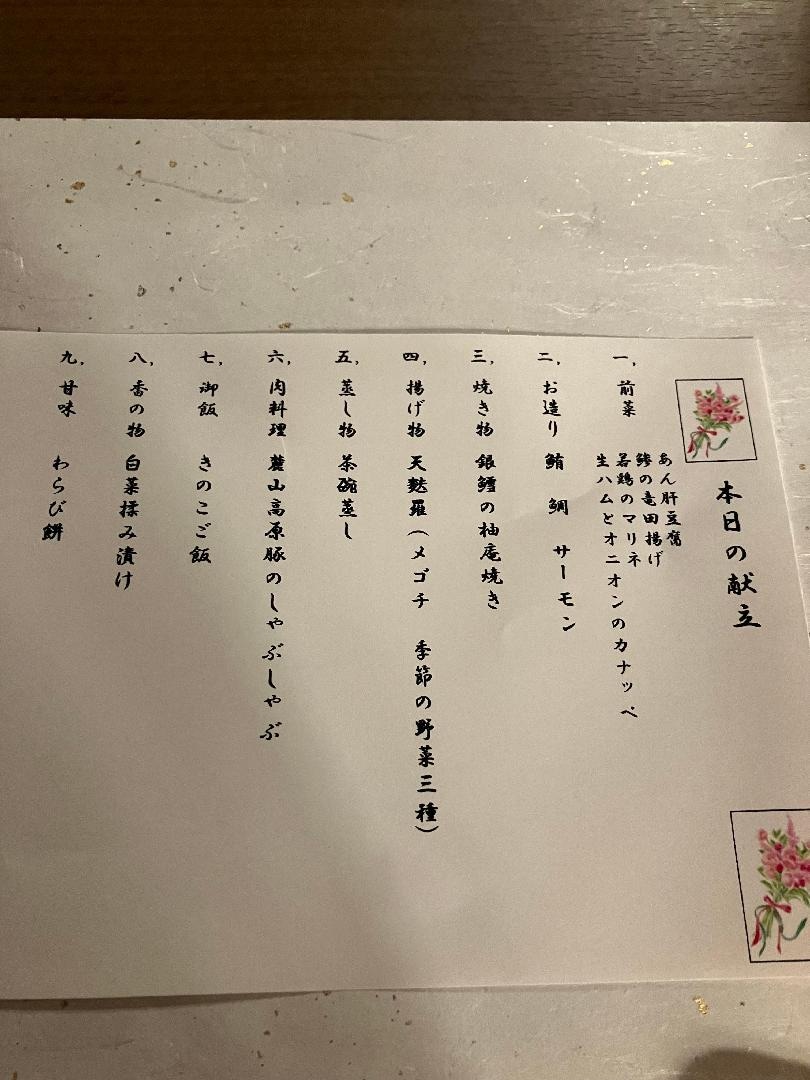 本日の献立
一、前菜 あん肝豆腐
鯵の竜田揚げ
若鶏のマリネ
生ハムとオニオンのカナッペ
二、お造り 鮪 鯛 サーモン
三、焼き物 銀鱈の柚庵焼き
四、揚げ物 天麩羅(メゴチ 季節の野菜三種)
五、蒸し物 茶碗蒸し
六、肉料理 麓山高原豚のしゃぶしゃぶ
七、御飯 きのこご飯
八、香の物 白菜揉み漬け
九、甘味 わらび餅